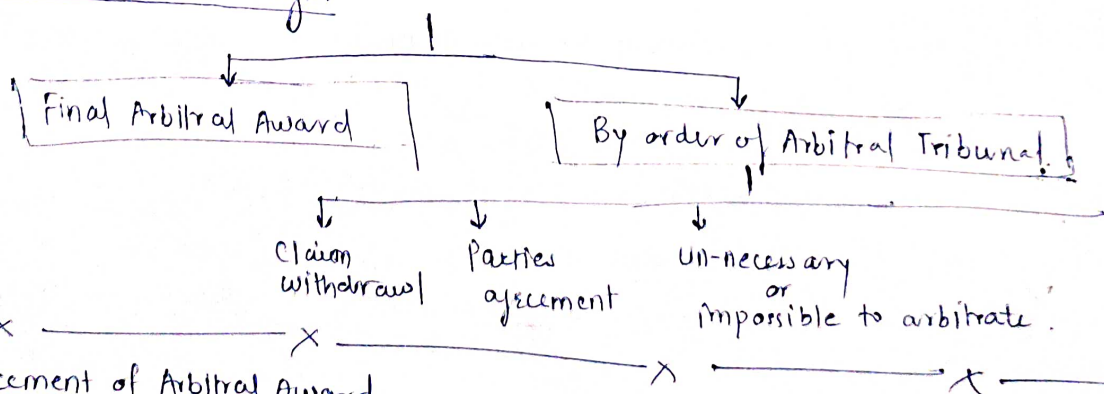 Final Arbitral Award
By order of Arbitral Tribunal.
Claim
withdrawl
Parties
agreement
un-necessary
or
impossible to arbitrate.
of Arbitral Award